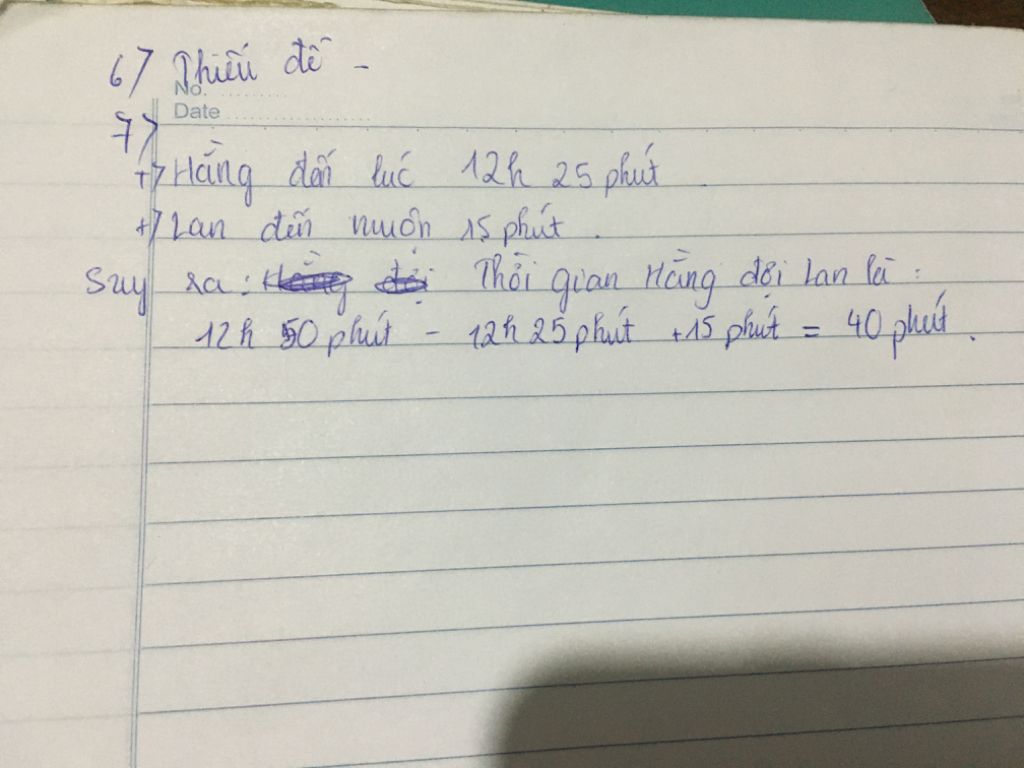 6) Thiếu đề -
No. ............
Date ....................
7)
+) Hằng đến lúc 12h 25 phút.
+) Lan đến muộn 15 phút.
Suy ra: Thời gian Hằng đợi Lan là:
12h 50 phút - 12h 25 phút + 15 phút = 40 phút.